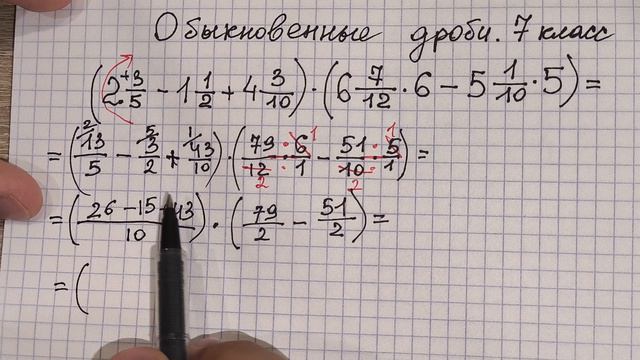 Обыкновенные дроби. 7 класс
(2 3/5 − 1 1/2 + 4 3/10) · (6 7/12 · 6 − 5 1/10 · 5) =
= (13/5 − 3/2 + 43/10) · (79/12 · 6/1 − 51/10 · 5/1) =
= ((26 − 15 + 43)/10) · (79/2 − 51/2) =
= (